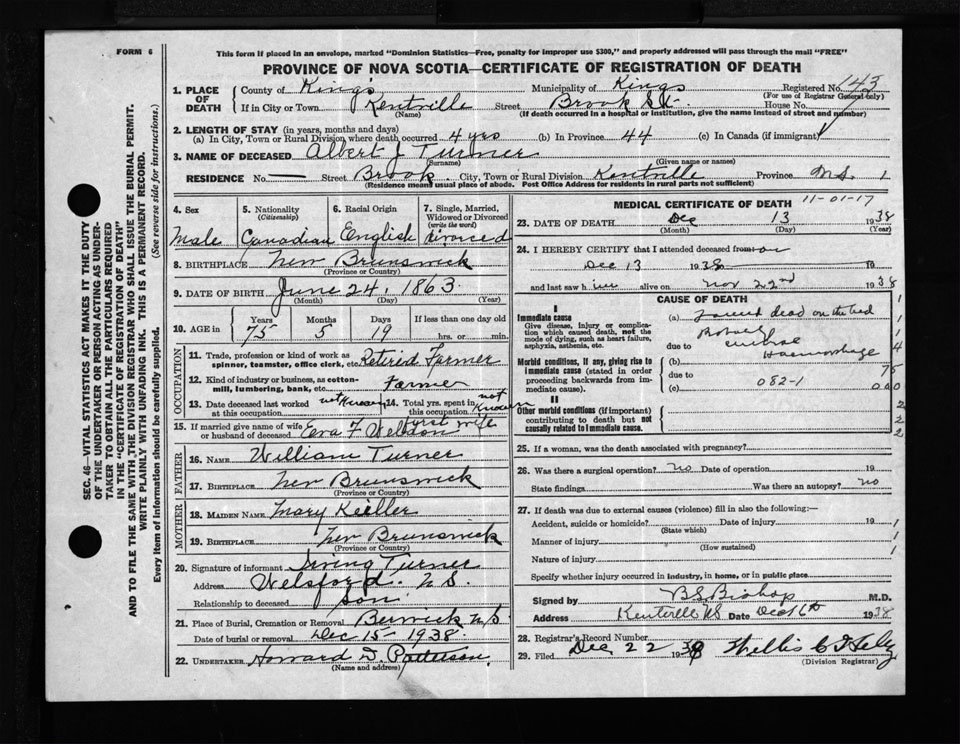 FORM 6
This form if placed in an envelope, marked "Dominion Statistics—Free, penalty for improper use $300," and properly addressed will pass through the mail "FREE"
PROVINCE OF NOVA SCOTIA—CERTIFICATE OF REGISTRATION OF DEATH
1. PLACE OF DEATH
County of King's Municipality of Kings Registered No. 143
(For use of Registrar General only)
If in City or Town Kentville Street Brook St. House No.
(Name) (If death occurred in a hospital or institution, give the name instead of street and number)
2. LENGTH OF STAY (in years, months and days)
(a) In City, Town or Rural Division where death occurred 4 yrs (b) In Province 44 (c) In Canada (if immigrant)
3. NAME OF DECEASED Albert J. Turner
(Surname) (Given name or names)
RESIDENCE No. — Street Brook City, Town or Rural Division Kentville Province N.S. 1
(Residence means usual place of abode. Post Office Address for residents in rural parts not sufficient)
4. Sex 5. Nationality (Citizenship) 6. Racial Origin 7. Single, Married, Widowed or Divorced (write the word)
Male Canadian English Divorced
8. BIRTHPLACE New Brunswick
(Province or Country)
9. DATE OF BIRTH June 24. 1863.
(Month) (Day) (Year)
10. AGE in Years Months Days If less than one day old
75 5 19 hrs. or min.
OCCUPATION
11. Trade, profession or kind of work as spinner, teamster, office clerk, etc. Retired Farmer
12. Kind of industry or business, as cotton-mill, lumbering, bank, etc. Farmer
13. Date deceased last worked at this occupation not Known 14. Total yrs. spent in this occupation not Known
15. If married give name of wife or husband of deceased Eva F Weldon first wife
FATHER
16. NAME William Turner
17. BIRTHPLACE New Brunswick
(Province or Country)
MOTHER
18. MAIDEN NAME Mary Keiller
19. BIRTHPLACE New Brunswick
(Province or Country)
20. Signature of informant Irving Turner
Address Welsford. N.S.
Relationship to deceased son
21. Place of Burial, Cremation or Removal Berwick N.S.
Date of burial or removal Dec 15 - 1938.
22. UNDERTAKER Howard D. Patterson,
(Name and address)
MEDICAL CERTIFICATE OF DEATH
11-01-17
23. DATE OF DEATH Dec 13 1938
(Month) (Day) (Year)
24. I HEREBY CERTIFY that I attended deceased from on
Dec 13 1938 to 19
and last saw him alive on Nov 22nd 1938
CAUSE OF DEATH
I
Immediate cause
Give disease, injury or complication which caused death, not the mode of dying, such as heart failure, asphyxia, asthenia, etc.
(a) Found dead on the bed
due to
Haemorrhage
Morbid conditions, if any, giving rise to immediate cause (stated in order proceeding backwards from immediate cause).
(b)
due to
(c) 082-1
II
Other morbid conditions (if important) contributing to death but not causally related to immediate cause.
1
1
1
4
75
000
2
2
2
25. If a woman, was the death associated with pregnancy?
26. Was there a surgical operation? No Date of operation 19
State findings Was there an autopsy? no
27. If death was due to external causes (violence) fill in also the following:—
Accident, suicide or homicide? Date of injury 19
(State which)
Manner of injury
(How sustained)
Nature of injury
1
1
1
Specify whether injury occurred in industry, in home, or in public place
Signed by B.S. Bishop M.D.
Address Kentville NS Date Dec 16th 1938
28. Registrar's Record Number
29. Filed Dec 22 1938
(Division Registrar)
SEC. 46—VITAL STATISTICS ACT MAKES IT THE DUTY
OF THE UNDERTAKER OR PERSON ACTING AS UNDERTAKER TO OBTAIN ALL THE PARTICULARS REQUIRED
IN THE "CERTIFICATE OF REGISTRATION OF DEATH"
AND TO FILE THE SAME WITH THE DIVISION REGISTRAR WHO SHALL ISSUE THE BURIAL PERMIT.
WRITE PLAINLY WITH UNFADING INK. THIS IS A PERMANENT RECORD.
Every item of information should be carefully supplied. (See reverse side for instructions.)